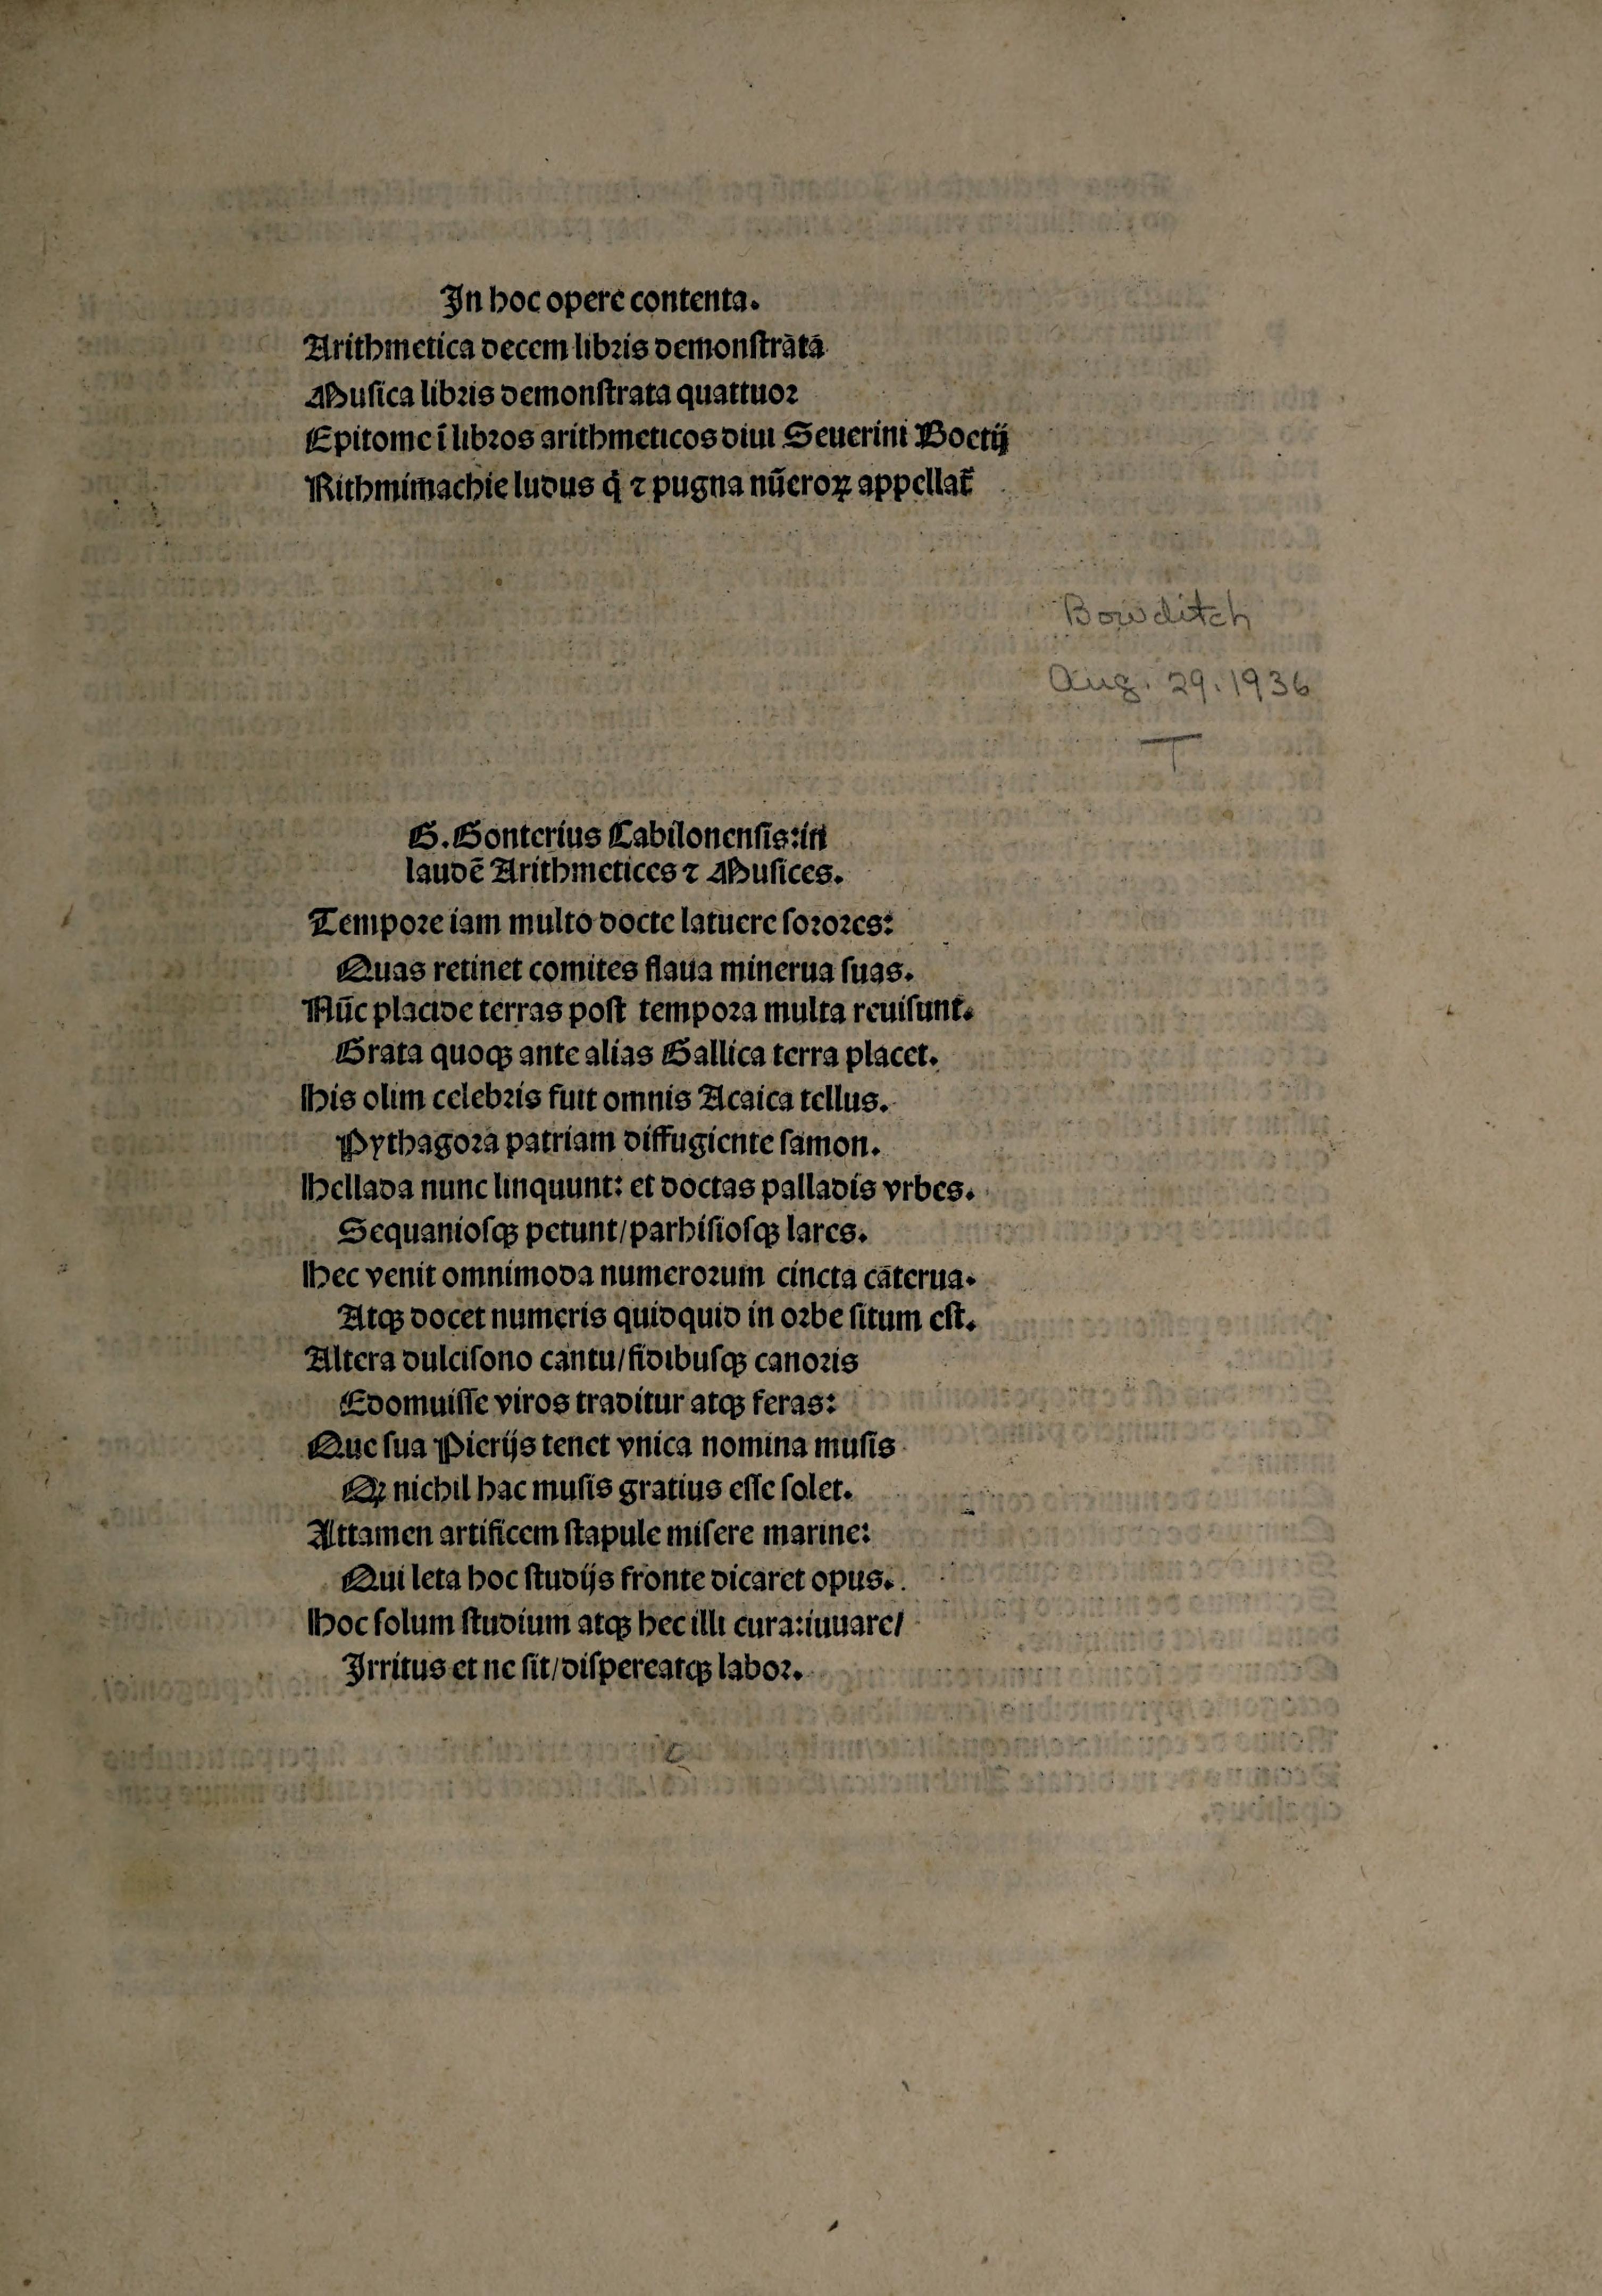 In hoc opere contenta.
Arithmetica decem libris demonstrata
Musica libris demonstrata quattuor
Epitome ĩ libros arithmeticos diui Seuerini Boetij
Rithmimachie ludus q̃ ⁊ pugna nũeroꝝ appellat̃
Bowditch
Aug. 29. 1936
T
G. Gonterius Cabilonensis: in
laudẽ Arithmetices ⁊ Musices.
Tempore iam multo docte latuere sorores:
Quas retinet comites flaua minerua suas.
Nũc placide terras post tempora multa reuisunt.
Grata quoqꝫ ante alias Gallica terra placet.
His olim celebris fuit omnis Acaica tellus.
Pythagora patriam diffugiente samon.
Hellada nunc linquunt: et doctas palladis vrbes.
Sequaniosqꝫ petunt/parhisiosqꝫ lares.
Hec venit omnimoda numerorum cincta caterua.
Atqꝫ docet numeris quidquid in orbe situm est.
Altera dulcisono cantu/fidibusqꝫ canoris
Edomuisse viros traditur atqꝫ feras:
Que sua Pierijs tenet vnica nomina musis
Qꝫ nichil hac musis gratius esse solet.
Attamen artificem stapule misere marine:
Qui leta hoc studijs fronte dicaret opus.
Hoc solum studium atqꝫ hec illi cura: iuuare/
Irritus et ne sit/dispereatqꝫ labor.